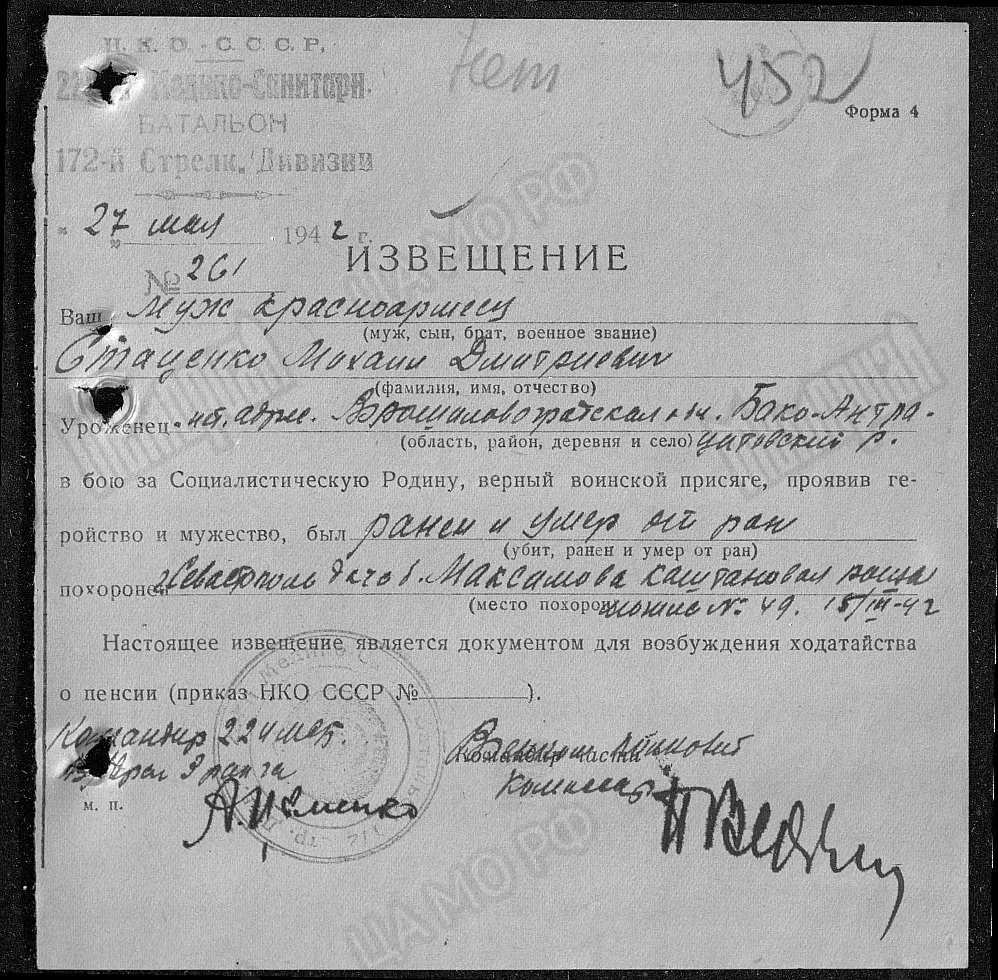 Н. К. О. - С. С. С. Р.
нет
452
Медико-Санитарн.
Форма 4
БАТАЛЬОН
172-й Стрелк. Дивизии
" 27 " мая 1942 г.
ИЗВЕЩЕНИЕ
№ 261
Ваш муж красноармеец
(муж, сын, брат, военное звание)
Стаценко Михаил Дмитриевич
(фамилия, имя, отчество)
Уроженец адрес. Ворошиловоградская обл. Боко-Антра-
(область, район, деревня и село) цитовский р.
в бою за Социалистическую Родину, верный воинской присяге, проявив ге-
ройство и мужество, был ранен и умер от ран
(убит, ранен и умер от ран)
похоронен г. Севастополь дача б. Максимова каштановая роща
(место похорон могила № 49. 15/III-42
Настоящее извещение является документом для возбуждения ходатайства
о пенсии (приказ НКО СССР № ).
Командир 224 мсб.
Командир части
Военком
в/врач 3 ранга
комиссар
м. п.
ЦАМО РФ
ЦАМО РФ